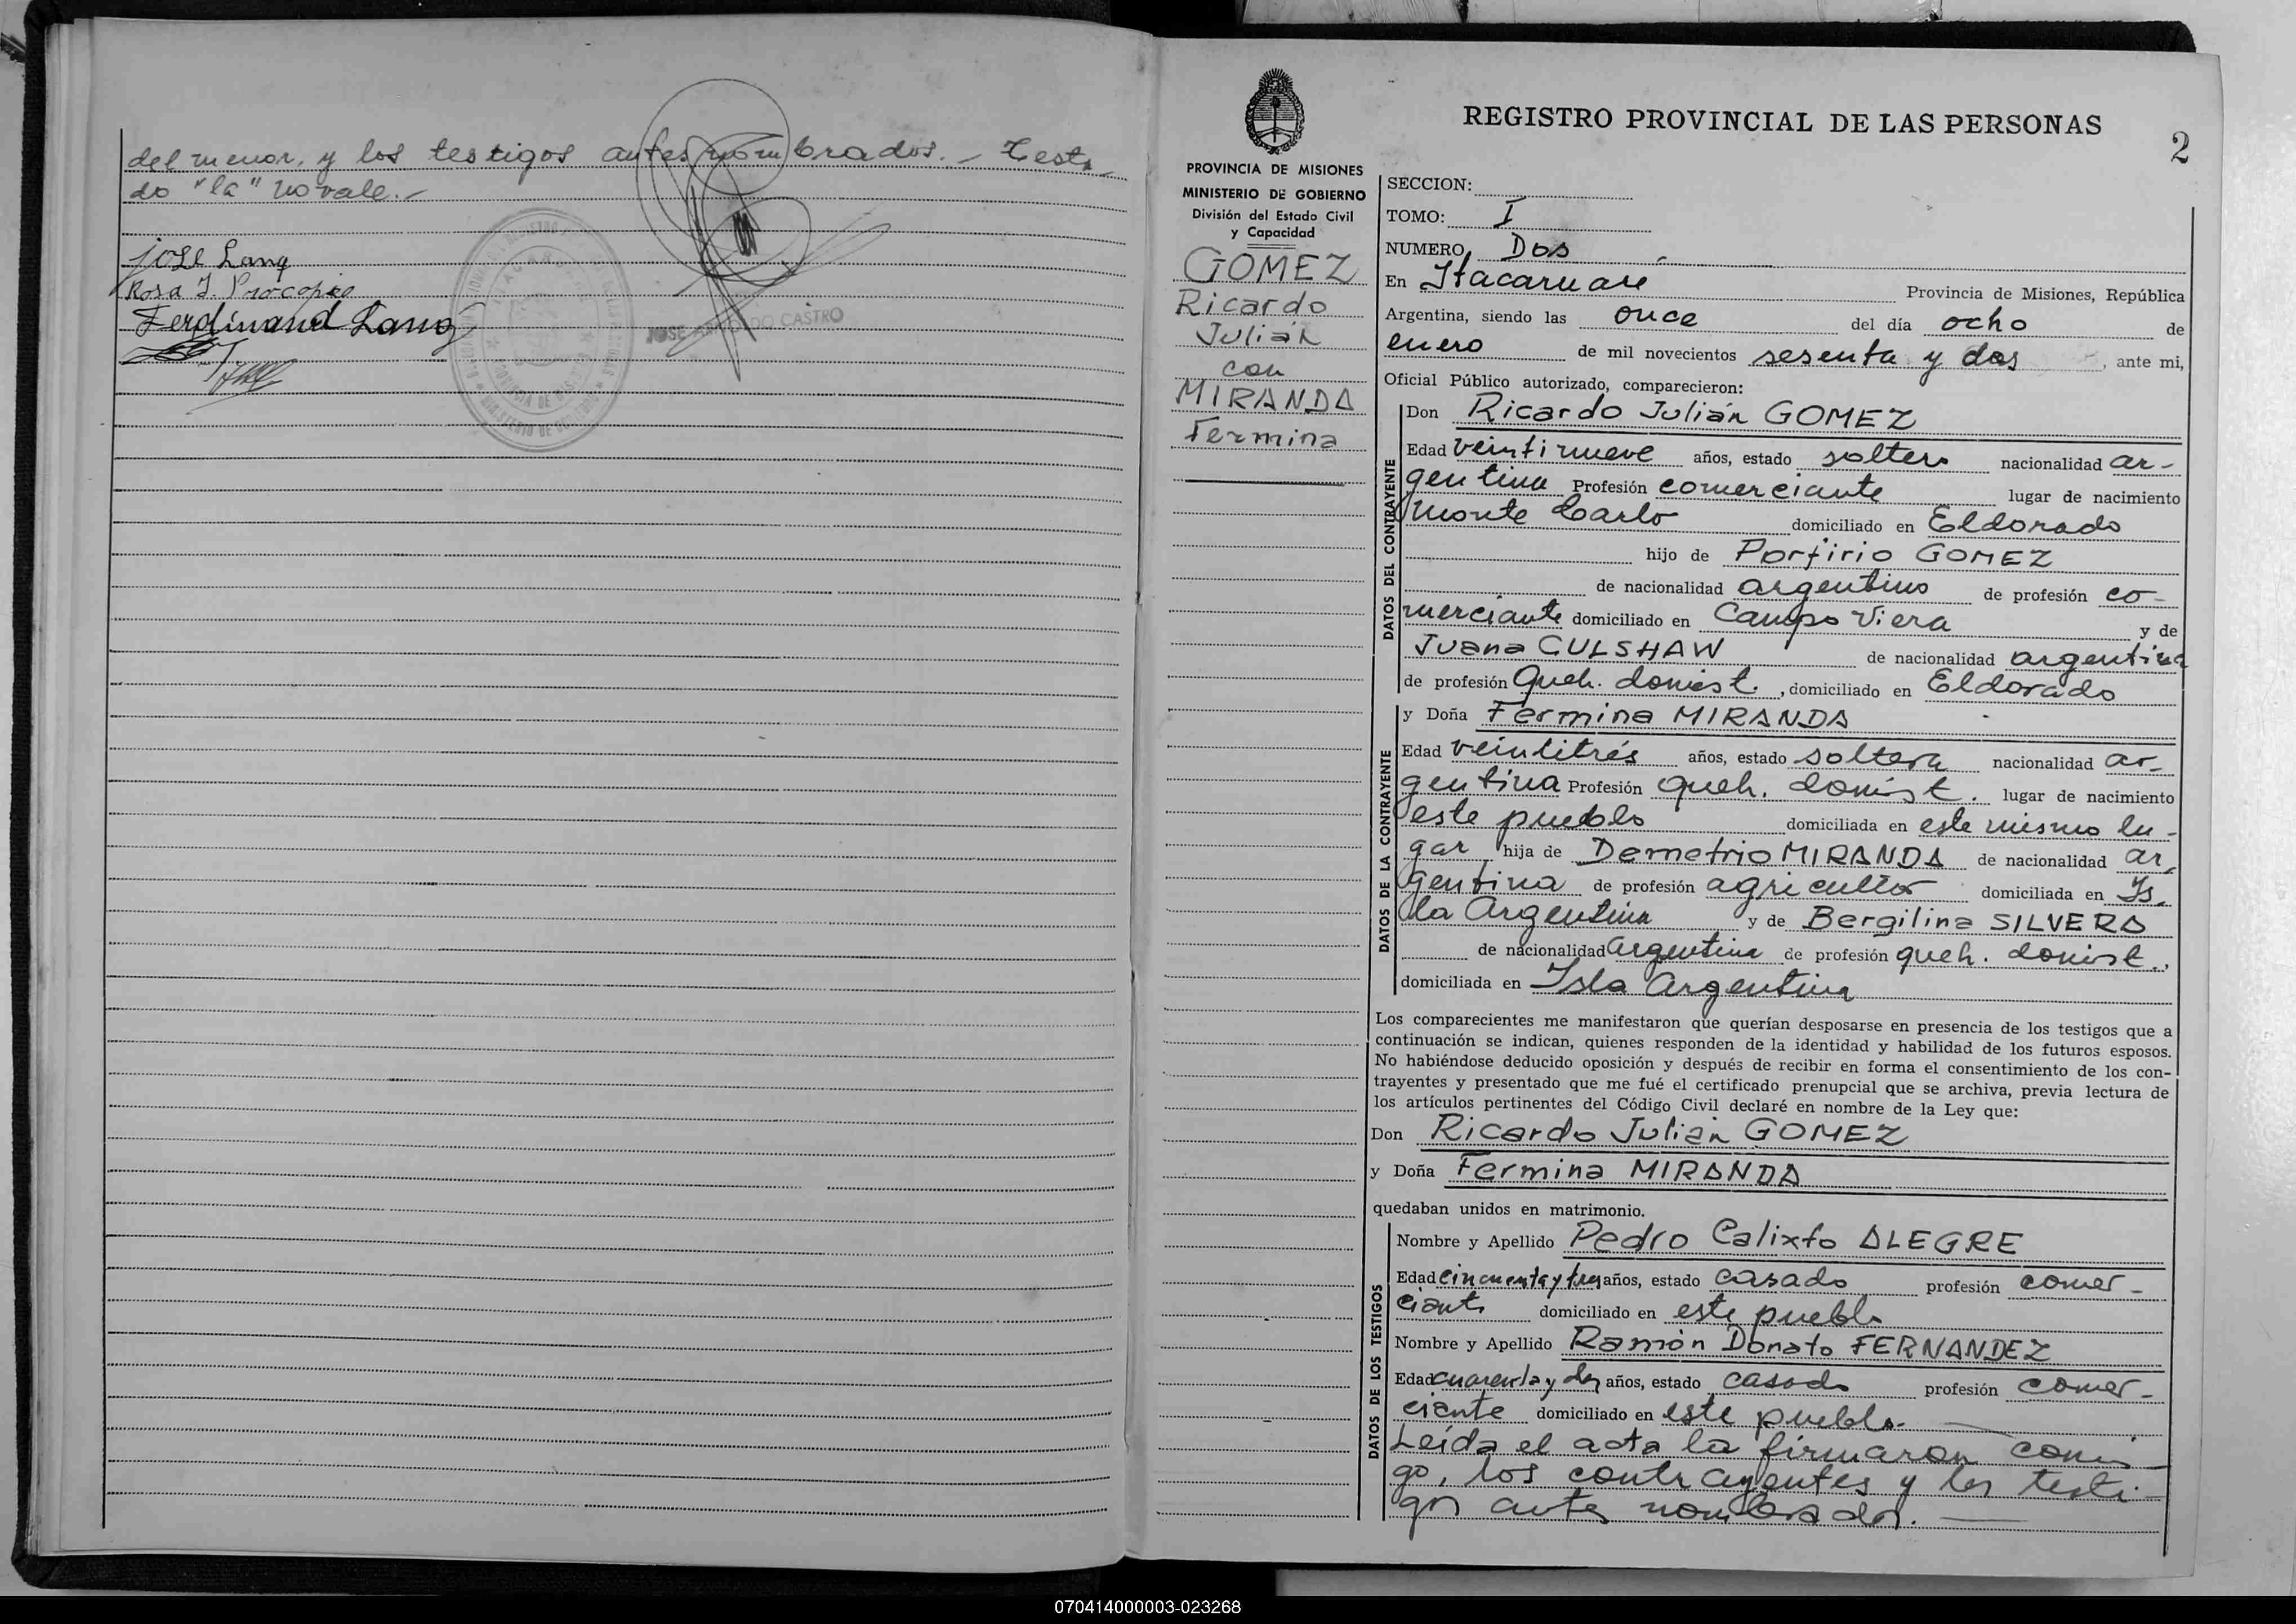 del menor, y los testigos antes nombrados. - Testa-
do "la" no vale. -
José Lang
Rosa I. Procopio
Ferdinand Lang
JOSE ARMANDO CASTRO
PROVINCIA DE MISIONES
MINISTERIO DE GOBIERNO
División del Estado Civil
y Capacidad
GOMEZ
Ricardo
Julián
con
MIRANDA
Fermina
REGISTRO PROVINCIAL DE LAS PERSONAS
2
SECCION:
TOMO: I
NUMERO, Dos
En Itacaruaré Provincia de Misiones, República
Argentina, siendo las once del día ocho de
enero de mil novecientos sesenta y dos, ante mi,
Oficial Público autorizado, comparecieron:
DATOS DEL CONTRAYENTE
Don Ricardo Julián GOMEZ
Edad veintinueve años, estado soltero nacionalidad ar-
gentina Profesión comerciante lugar de nacimiento
Monte Carlo domiciliado en Eldorado
hijo de Porfirio GOMEZ
de nacionalidad argentino de profesión co-
merciante domiciliado en Campo Viera y de
Juana GULSHAW de nacionalidad argentina
de profesión Queh. domést., domiciliado en Eldorado
DATOS DE LA CONTRAYENTE
y Doña Fermina MIRANDA
Edad veintitrés años, estado soltera nacionalidad ar-
gentina Profesión queh. domést. lugar de nacimiento
este pueblo domiciliada en este mismo lu-
gar hija de Demetrio MIRANDA de nacionalidad ar-
gentina de profesión agricultor domiciliada en Is-
la Argentina y de Bergilina SILVERA
de nacionalidad argentina de profesión queh. domést.,
domiciliada en Isla Argentina
Los comparecientes me manifestaron que querían desposarse en presencia de los testigos que a
continuación se indican, quienes responden de la identidad y habilidad de los futuros esposos.
No habiéndose deducido oposición y después de recibir en forma el consentimiento de los con-
trayentes y presentado que me fué el certificado prenupcial que se archiva, previa lectura de
los artículos pertinentes del Código Civil declaré en nombre de la Ley que:
Don Ricardo Julián GOMEZ
y Doña Fermina MIRANDA
quedaban unidos en matrimonio.
DATOS DE LOS TESTIGOS
Nombre y Apellido Pedro Calixto ALEGRE
Edad cincuenta y tres años, estado casado profesión comer-
ciante domiciliado en este pueblo
Nombre y Apellido Ramón Donato FERNANDEZ
Edad cuarenta y dos años, estado casado profesión comer-
ciante domiciliado en este pueblo. —
Leída el acta la firmaron conmi-
go, los contrayentes y los testi-
gos antes nombrados. —
070414000003-023268